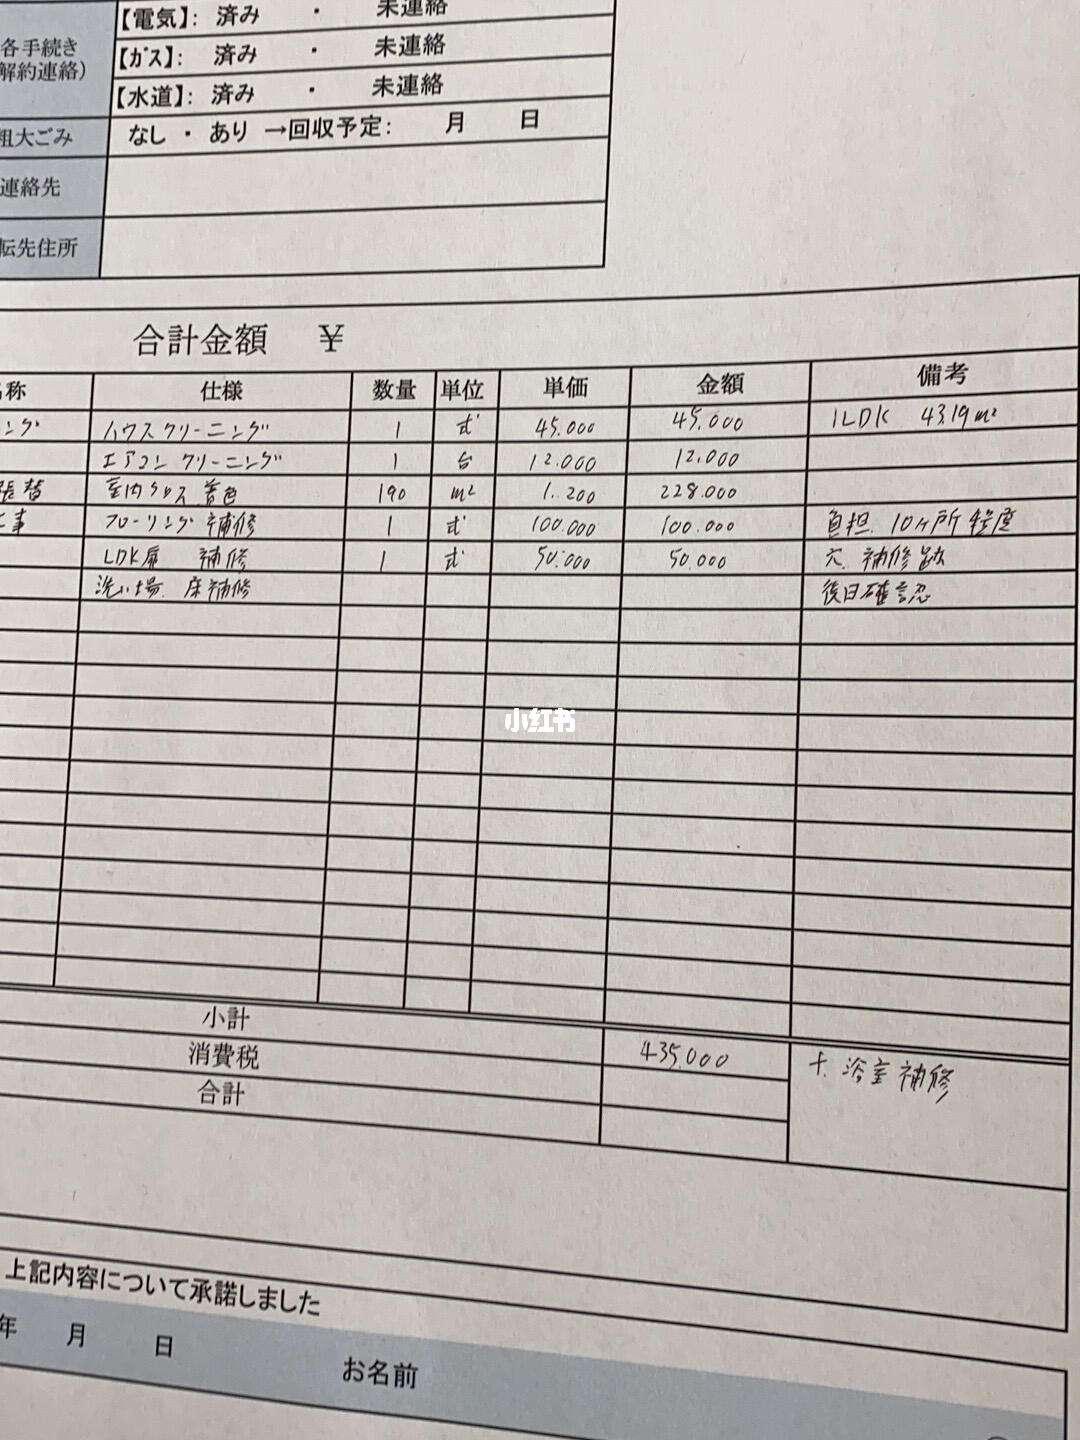 【電気】: 済み ・ 未連絡
各手続き
解約連絡）
【ガス】: 済み ・ 未連絡
【水道】: 済み ・ 未連絡
粗大ごみ なし ・ あり →回収予定: 月 日
連絡先
転先住所
合計金額 ¥
名称 仕様 数量 単位 単価 金額 備考
ング ハウスクリーニング 1 式 45.000 45.000 1LDK 43.19㎡
エアコン クリーニング 1 台 12.000 12.000
張替 室内クロス 着色 190 m² 1.200 228.000
工事 フローリング補修 1 式 100.000 100.000 負担 10ヶ所程度
LDK扉 補修 1 式 50.000 50.000 穴 補修跡
洗い場 床補修 後日確認
小红书
小計
消費税 435.000 +. 浴室補修
合計
上記内容について承諾しました
年 月 日 お名前